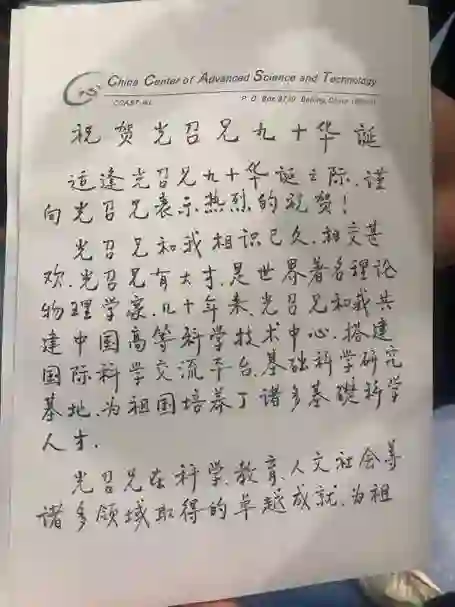 China Center of Advanced Science and Technology
P. O. Box 8730 Beijing, China
祝贺光召兄九十华诞
适逢光召兄九十华诞之际,谨
向光召兄表示热烈的祝贺!
光召兄和我相识已久,相交甚
欢.光召兄有大才,是世界著名理论
物理学家.几十年来,光召兄和我共
建中国高等科学技术中心,搭建
国际科学交流平台,基础科学研究
基地,为祖国培养了诸多基礎科学
人才.
光召兄在科学,教育,人文社会等
诸多领域取得的卓越成就,为祖